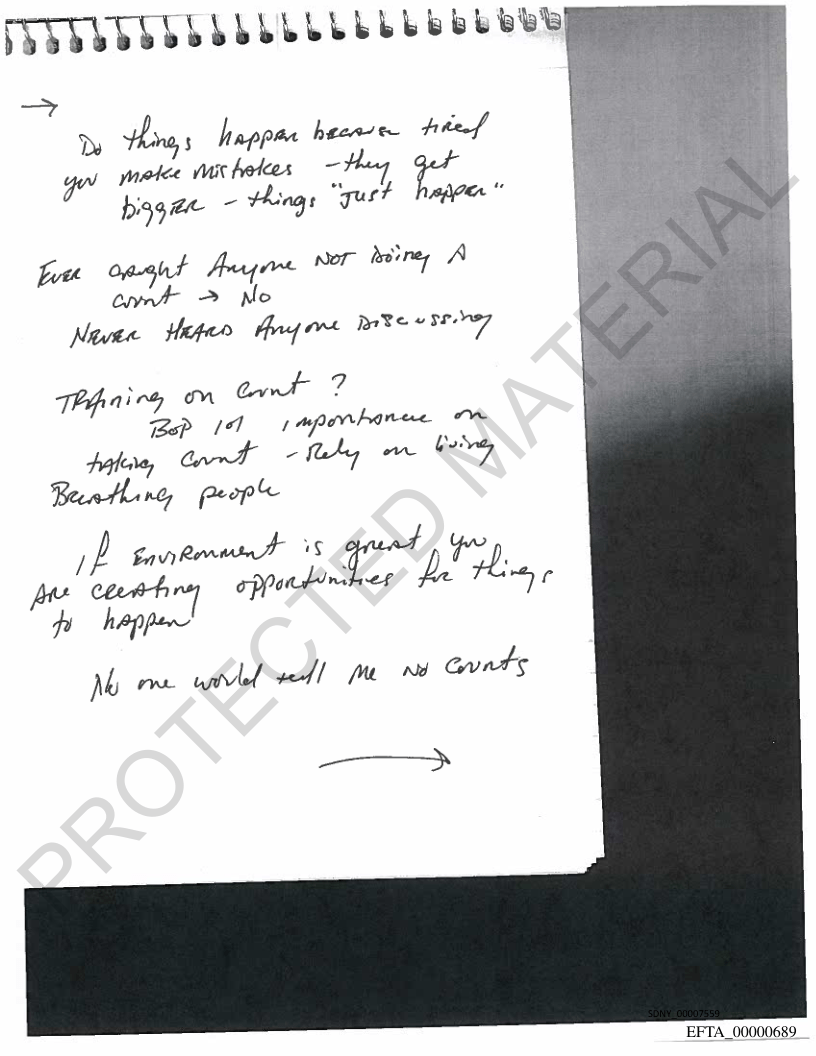 →
Do things happen because tired
you make mistakes - they get
bigger - things "just happen"
Ever caught Anyone NOT doing A
count → No
NEVER HEARD Anyone Discussing
Training on Count ?
BOP 101 importance on
taking Count - Rely on living
Breathing people
If Environment is great you
Are creating opportunities for things
to happen
No one would tell me no counts
→
PROTECTED MATERIAL
SDNY_00007559
EFTA_00000689